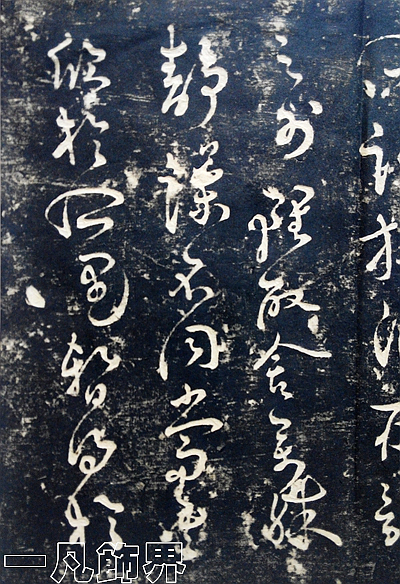 所託放浪形骸
之外雖取舍萬殊
靜躁不同當其
欣於所遇暫得於
一凡師界